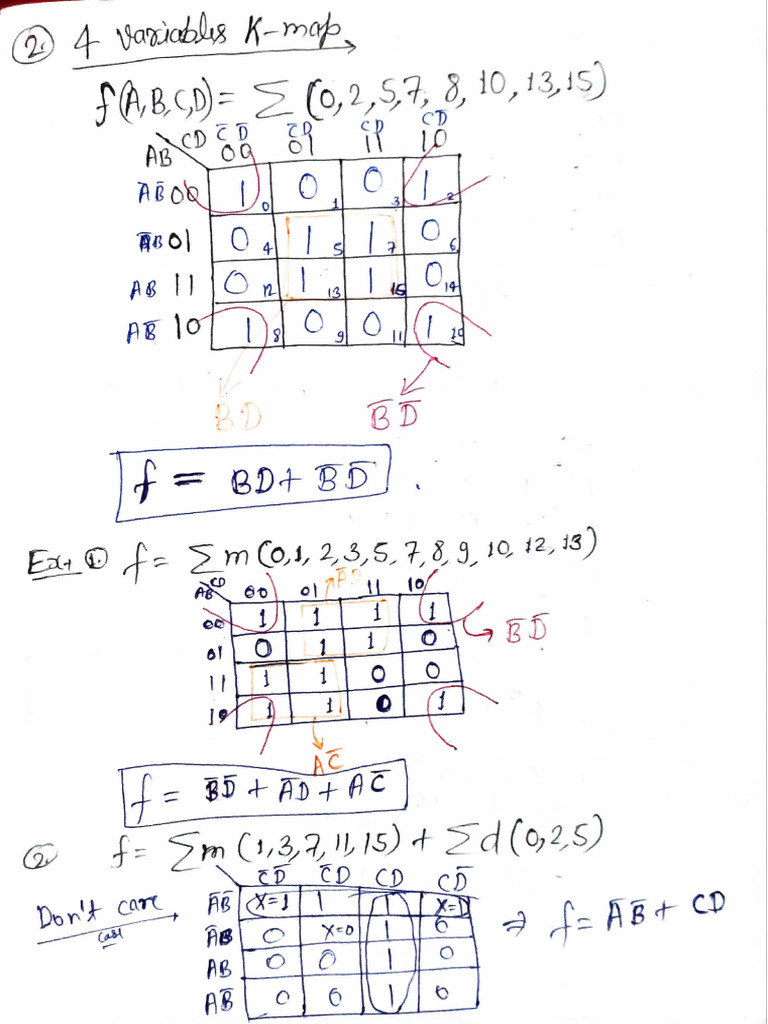 ② 4 variables K-map
f(A,B,C,D) = Σ (0, 2, 5, 7, 8, 10, 13, 15)
C̅D̅ C̅D CD CD̅
AB CD 00 01 11 10
A̅B̅ 00 1 0 0 1 0 3 1 2
A̅B 01 0 4 1 5 1 7 0 6
AB 11 0 12 1 13 1 15 0 14
AB̅ 10 1 8 0 9 0 11 1 10
BD B̅D̅
f = BD + B̅D̅ .
Ex → ① f = Σm (0,1, 2, 3, 5, 7, 8, 9, 10, 12, 13)
A̅D
AB CD 00 01 11 10
00 1 1 1 1
B̅D̅
01 0 1 1 0
11 1 1 0 0
10 1 1 0 1
AC̅
f = B̅D̅ + A̅D + AC̅
② f = Σm (1,3,7,11,15) + Σd (0,2,5)
C̅D̅ C̅D CD CD̅
Don't care case
A̅B̅ X=1 1 1 X=1
A̅B 0 X=0 1 0
⇒ f = A̅B̅ + CD
AB 0 0 1 0
AB̅ 0 0 1 0